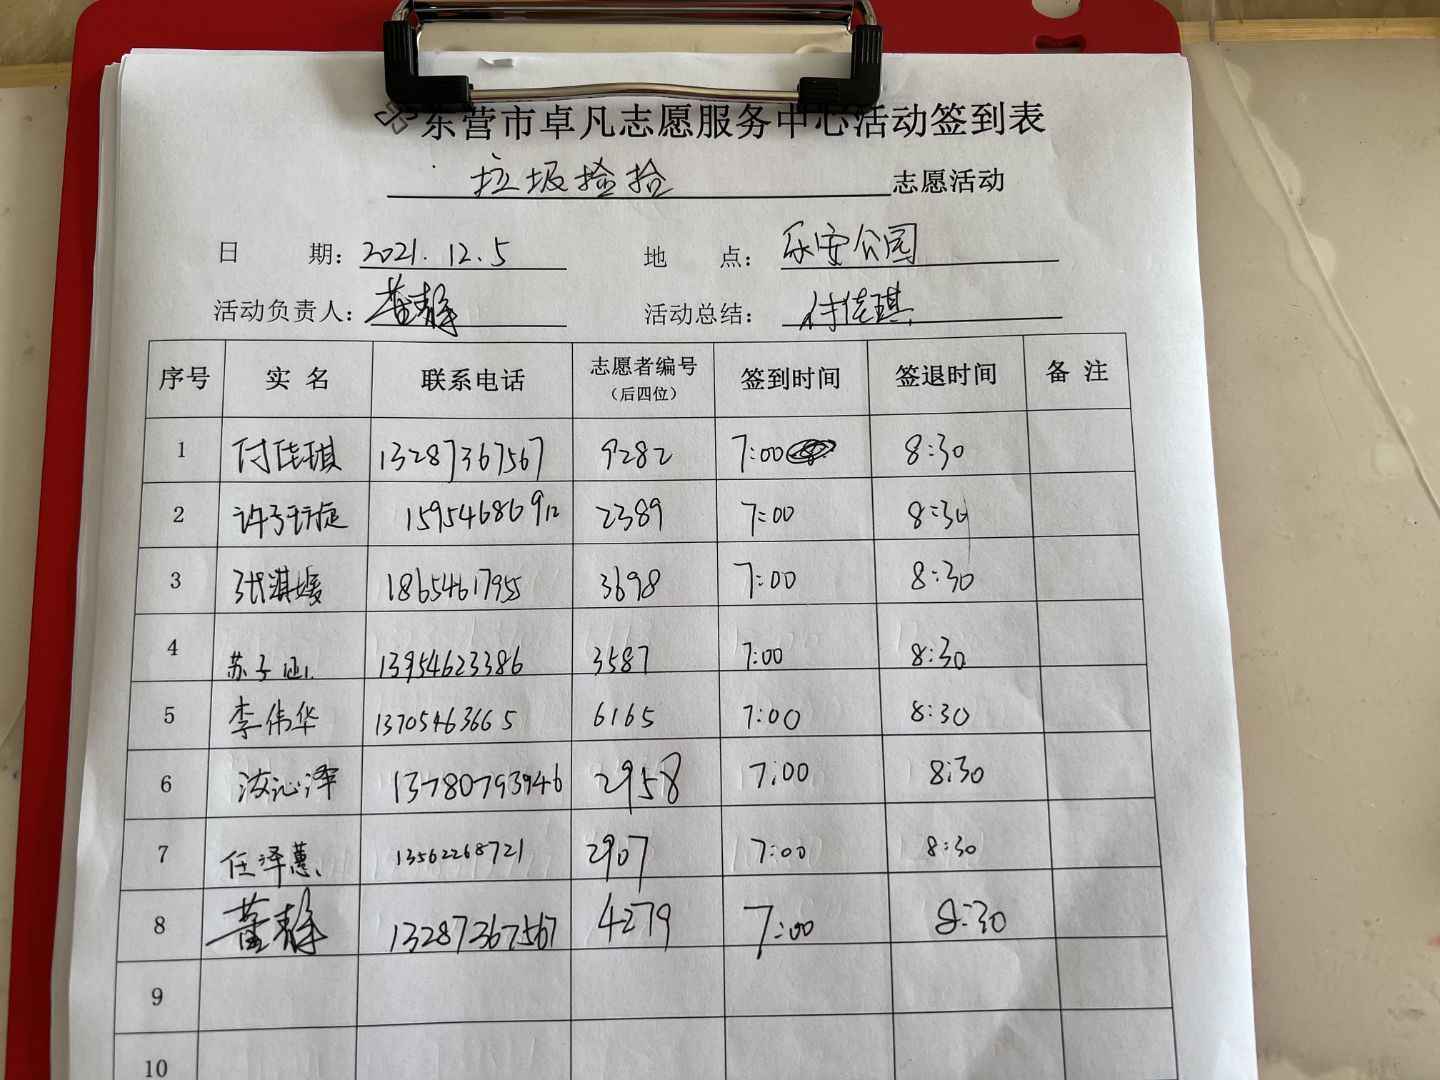 东营市卓凡志愿服务中心活动签到表
垃圾捡拾 志愿活动
日 期：2021.12.5 地 点：乐安公园
活动负责人：董静 活动总结：付佳琪
序号 实名 联系电话 志愿者编号（后四位） 签到时间 签退时间 备注
1 付佳琪 13287367567 9282 7:00 8:30
2 许子玗旋 15954686912 2389 7:00 8:30
3 张淇媛 18654617955 3698 7:00 8:30
4 苏子 13954623386 3587 7:00 8:30
5 李伟华 13705463665 6165 7:00 8:30
6 沁泽 13780793946 2958 7:00 8:30
7 任泽蕙 13562268721 2907 7:00 8:30
8 董静 13287367567 4279 7:00 8:30
9
10